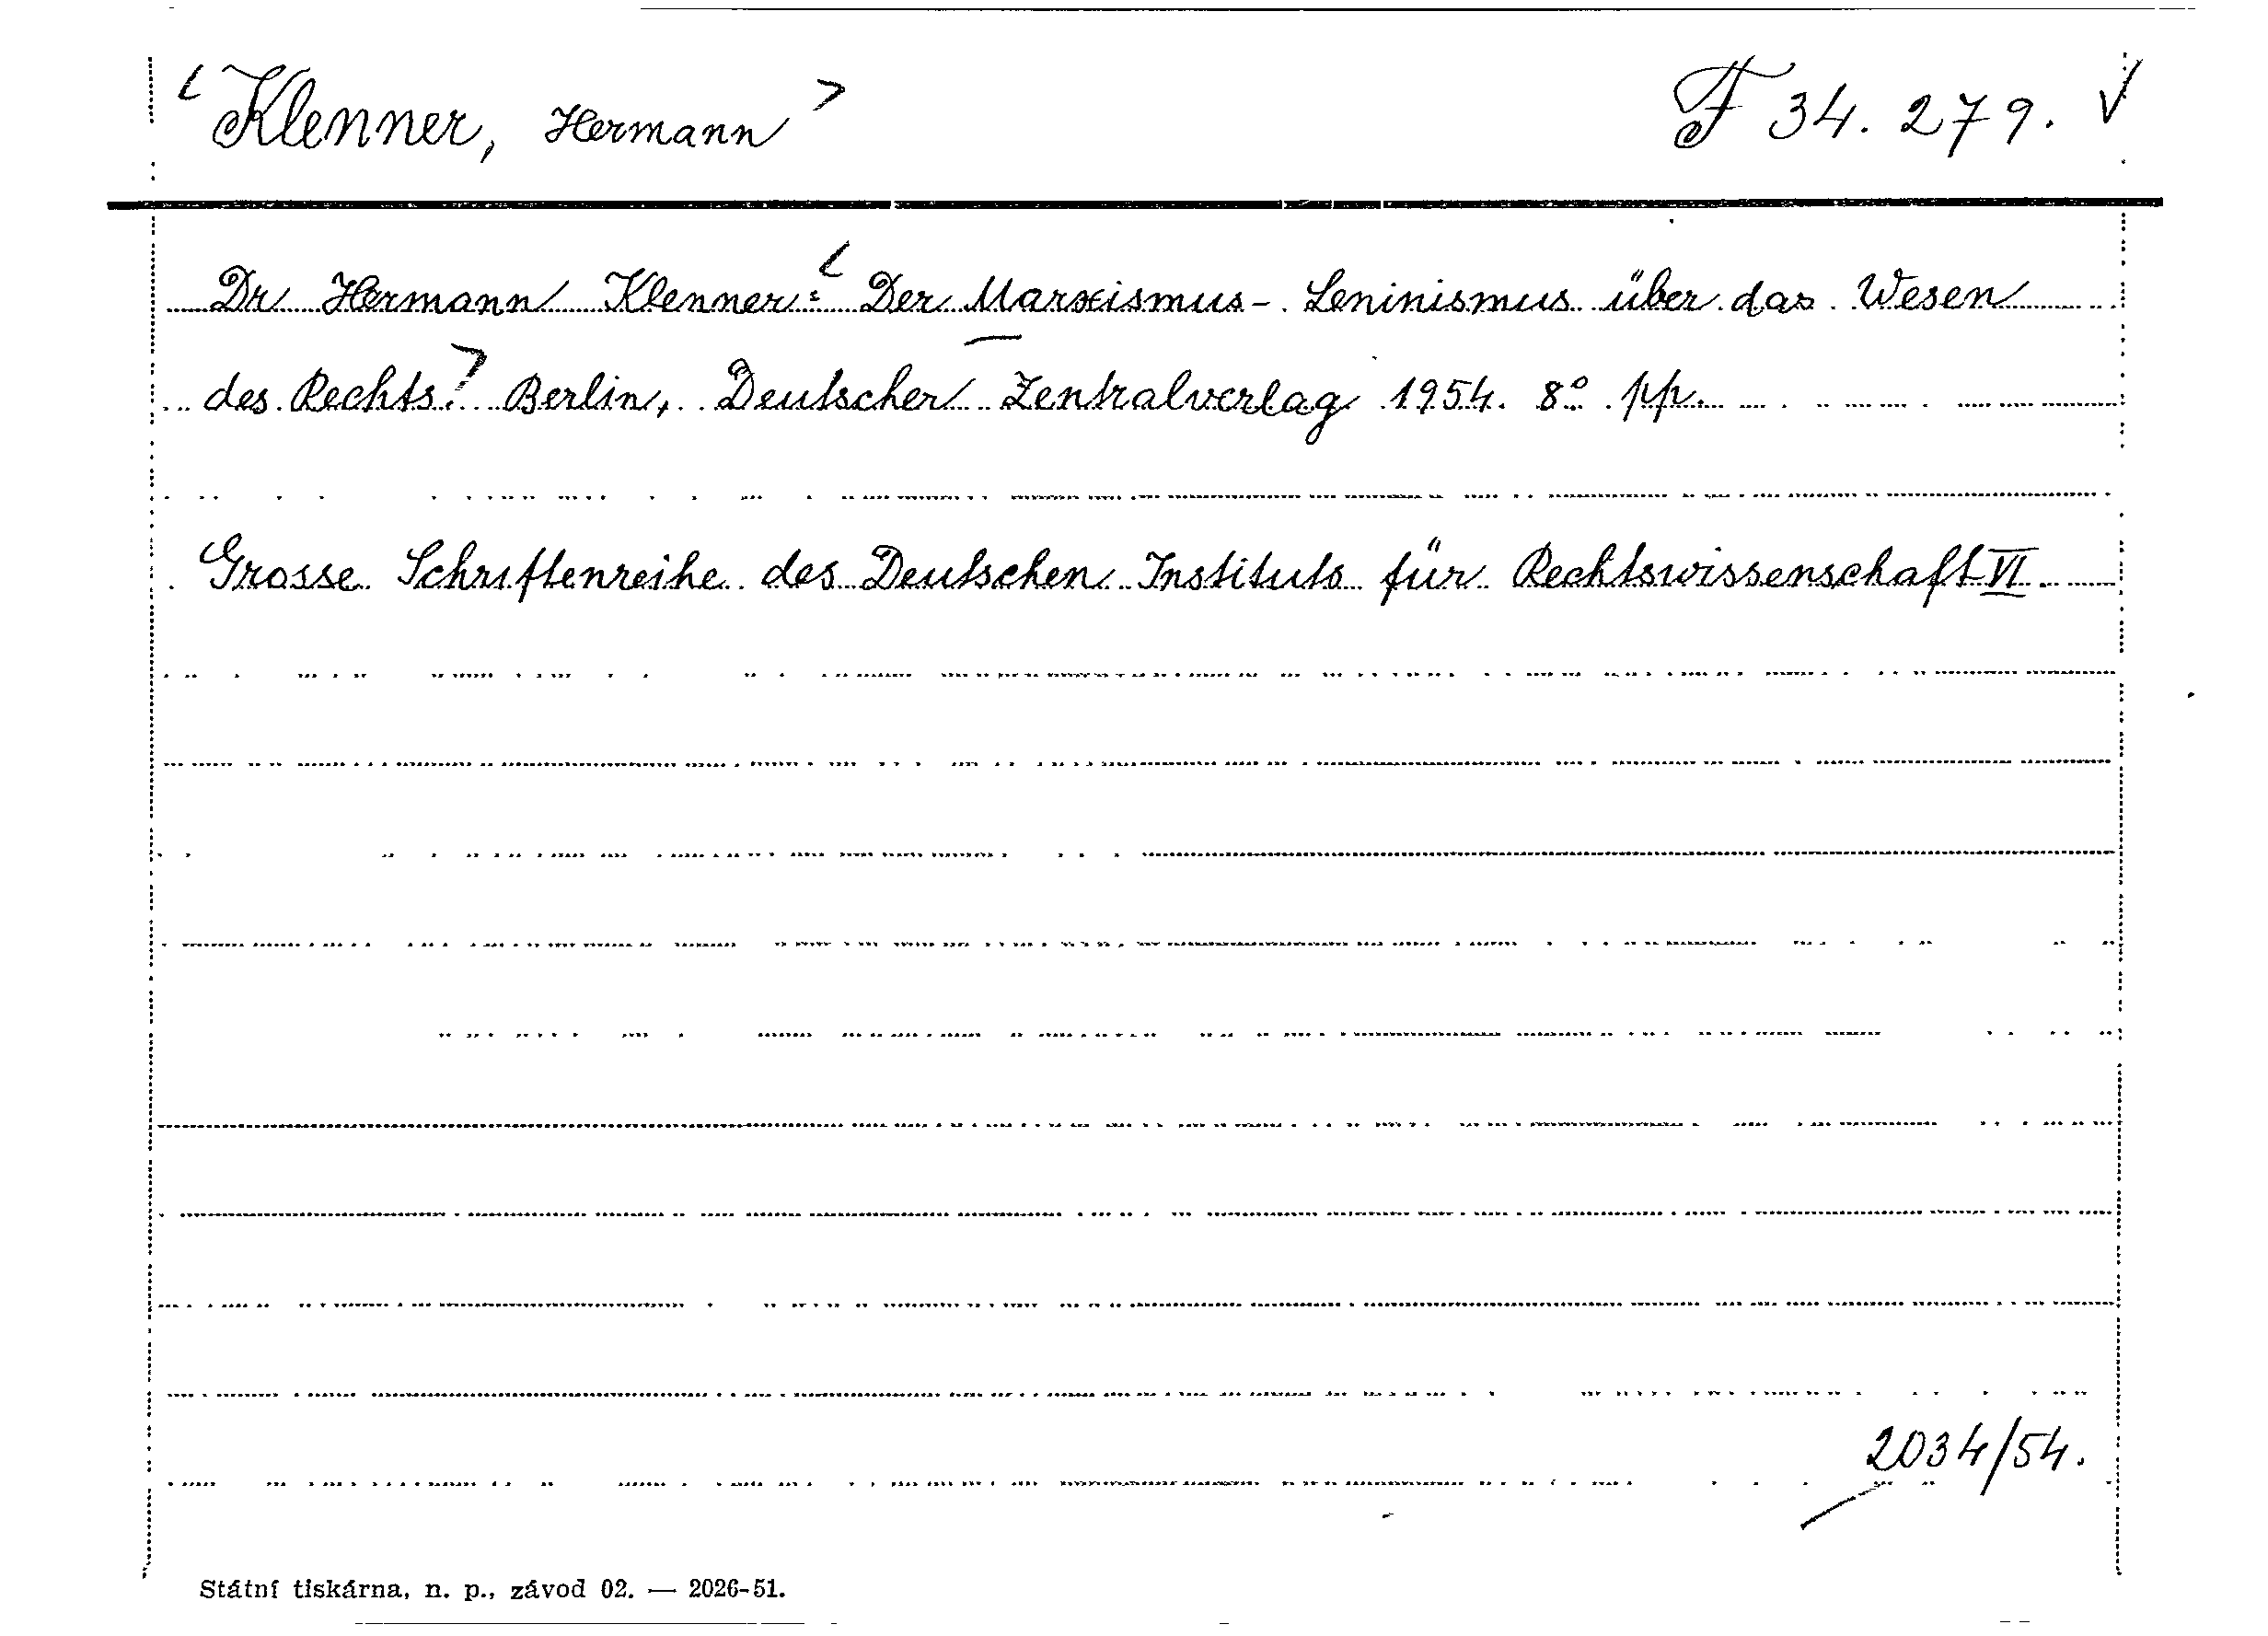 <Klenner, Hermann> F 34.279. √
Dr Hermann Klenner: <Der Marxismus-Leninismus über das Wesen
des Rechts.> Berlin, Deutscher Zentralverlag 1954. 8° pp.
Grosse Schriftenreihe des Deutschen Instituts für Rechtswissenschaft VI.
2034/54.
Státní tiskárna, n. p., závod 02. — 2026-51.